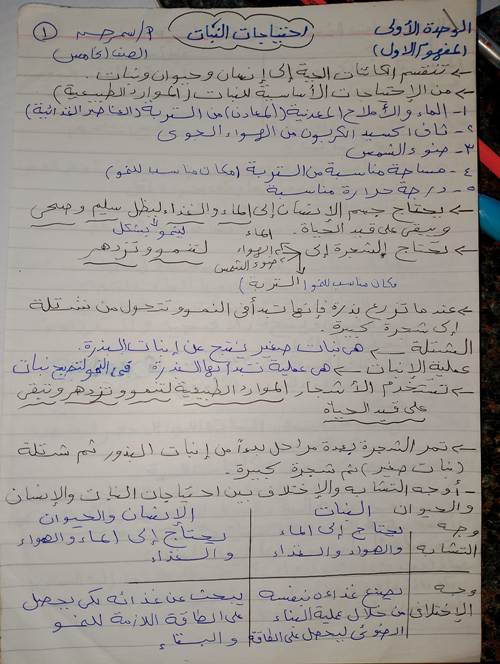 الوحدة الأولى
احتياجات النبات
أ/سمر حسن
١
(المفهوم الأول)
الصف الخامس
← تنقسم الكائنات الحية إلى إنسان وحيوان ونبات.
← من الاحتياجات الأساسية للنبات (الموارد الطبيعية)
١- الماء والأملاح المعدنية (المعادن) من التربة (العناصر الغذائية)
٢- ثاني اكسيد الكربون من الهواء الجوى
٣- ضوء الشمس
٤- مساحة مناسبة من التربة (مكان مناسب للنمو)
٥- درجة حرارة مناسبة
← يحتاج جسم الإنسان إلى الماء والغذاء ليظل سليم وصحى
ويبقى على قيد الحياة.
الماء
لينمو بشكل
← تحتاج الشجرة إلى
الهواء
لتنمو وتزدهر
ضوء الشمس
مكان مناسب للنمو (التربة)
← عند ما تزرع بذرة فإنها تبدأ فى النمو وتتحول من شتلة
إلى شجرة كبيرة.
الشتلة ← هى نبات صغير ينتج عن إنبات البذرة.
عملية الإنبات ← هى عملية تبدأ بها البذرة فى النمو لتصبح نبات
← تستخدم الأشجار الموارد الطبيعية لتنمو وتزدهر وتبقى
على قيد الحياه
← تمر الشجرة بعدة مراحل بدءاً من إنبات البذور ثم شتلة
(نبات صغير) ثم شجرة كبيرة.
- أوجه التشابه والإختلاف بين احتياجات النبات والإنسان
والحيوان
النبات
الإنسان والحيوان
وجه التشابه
يحتاج إلى الماء
والهواء والغذاء
يحتاج إلى الماء والهواء
والغذاء
وجه الإختلاف
يصنع غذاءه بنفسه
من خلال عملية البناء
الضوئى ليحصل على الطاقة
يبحث عن غذائه لكى يحصل
على الطاقة اللازمة للنمو
والبقاء